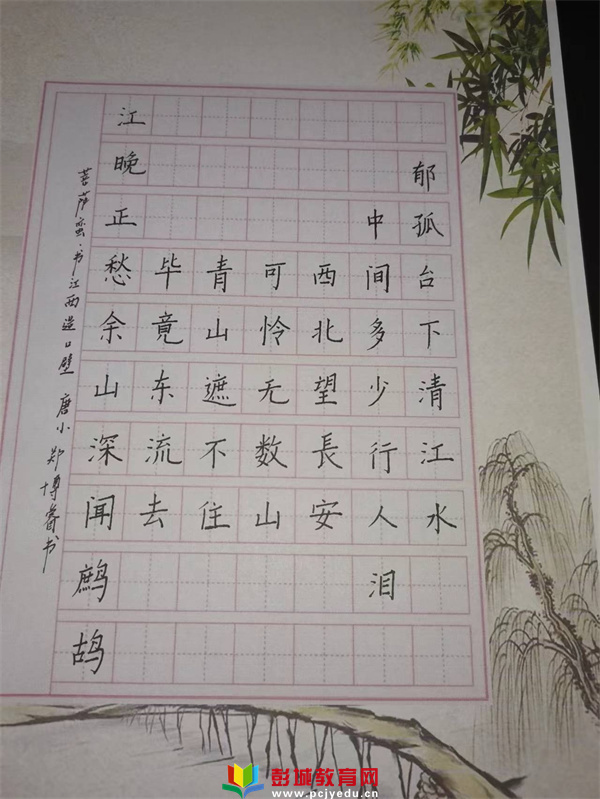 郁孤台下清江水
中间多少行人泪
西北望長安
可怜无数山
青山遮不住
毕竟东流去
江晚正愁余山深闻鹧鸪
菩萨蛮·书江西造口壁 唐小 郑博睿书
彭城教育网
www.pcjyedu.cn